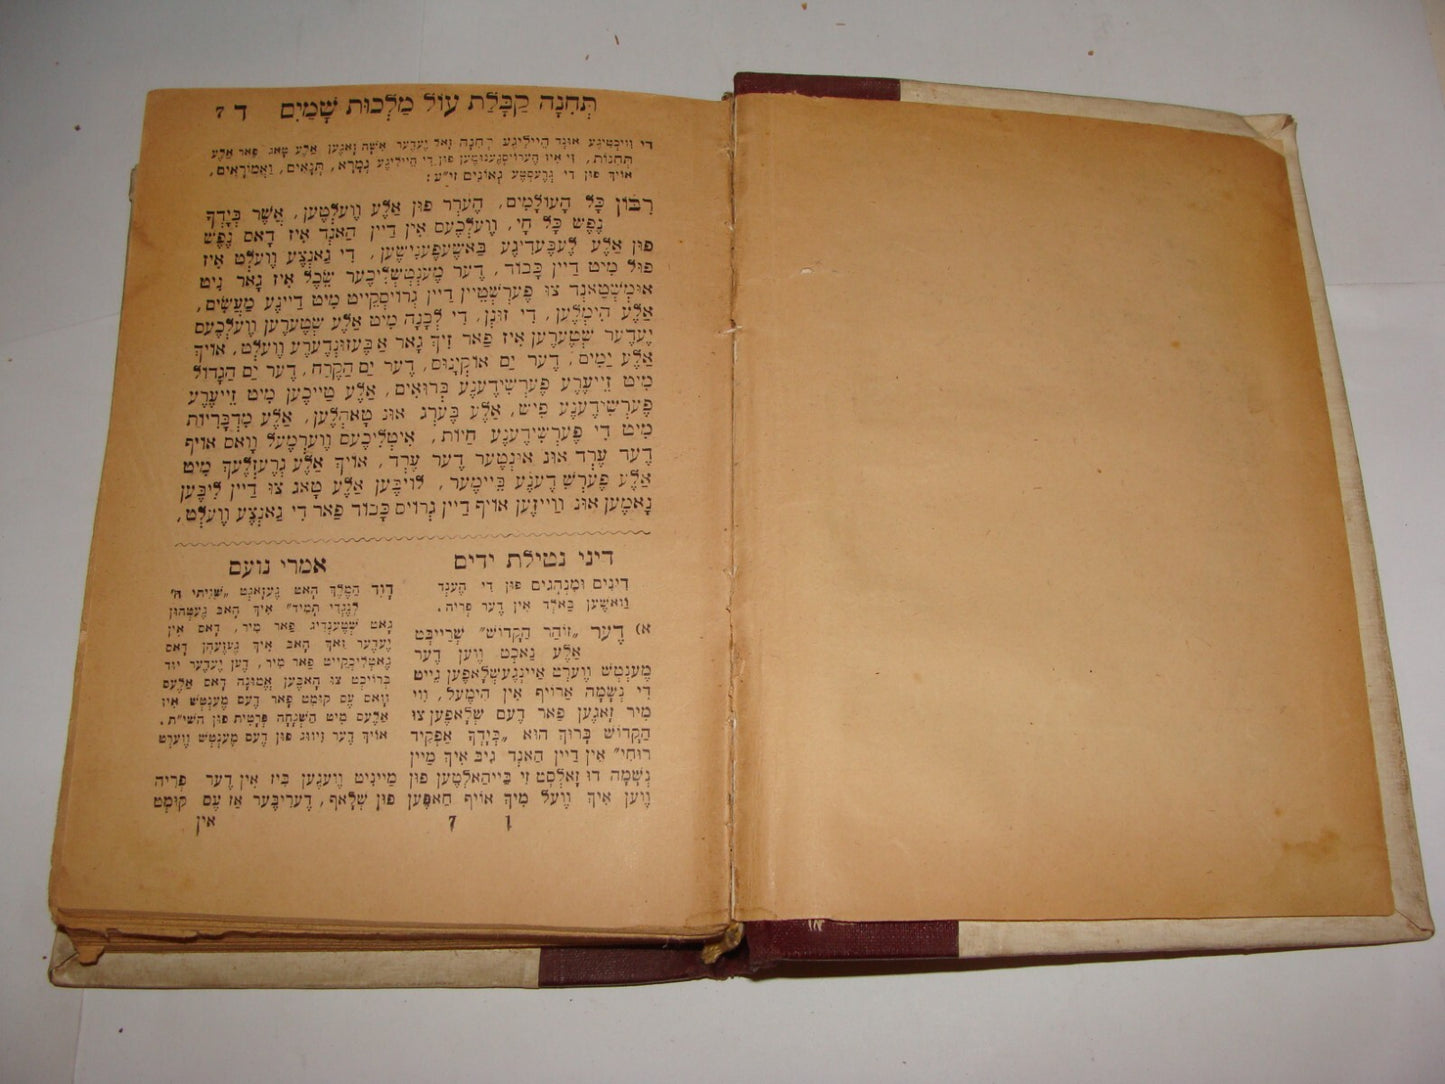 תְּחִנָּה קַבָּלַת עוֹל מַלְכוּת שָׁמַיִם ד 7
די וויכטיגע אונד הייליגע תחנה זאל יעדער אשה זאגען אלע טאג פאר אלע
תחנות, זי איז הערויסגענומען פון די הייליגע גְמָרָא, תַּנָּאִים, וַאֲמוֹרָאִים,
אויך פון די גרעסטע גאונים זי״ע:
רִבּוֹן כָּל הָעוֹלָמִים, הֶערְר פון אַלֶע וֶועלְטֶען, אֲשֶׁר בְּיָדְךָ
נֶפֶשׁ כָּל חָי, וֶועלְכֶעס אִין דַיין הַאנְד אִיז דָאס נֶפֶשׁ
פוּן אַלֶע לֶעבֶּעדִיגֶע בַּאשֶׁעפֶענִישֶׁען, דִי גַאנְצֶע וֶועלְט אִיז
פוּל מִיט דַיין כָּבוֹד, דֶער מֶענְטְשְׁלִיכֶער שֵׂכֶל אִיז גָאר נִיט
אוּמְשְׁטַאנְד צוּ פֶערְשְׁטֵיין דַיין גְרוֹיסְקֵייט מִיט דַיינֶע מַעֲשִׂים,
אַלֶע הִימְלֶען, דִי זוּנְן, דִי לְבָנָה מִיט אַלֶע שְׁטֶערֶען וֶועלְכֶעס
יֶעדֶער שְׁטֶערֶען אִיז פַאר זִיךְ גָאר אַבֶּעזוּנְדֶערֶע וֶועלְט, אוֹיךְ
אַלֶע יַמִים, דֶער יַם אוֹקְיָנוּס, דֶער יַם הַקֶרַח, דֶער יַם הַגָדוֹל
מִיט זֵייעֶרֶע פֶערְשִׁידֶענֶע בְּרוּאִים, אַלֶע טַייכֶען מִיט זֵייעֶרֶע
פֶערְשִׁידֶענֶע פִישׁ, אַלֶע בֶּערְג אוּנ טָאהְלֶען, אַלֶע מִדְבָּרִיוֹת
מִיט דִי פֶערְשִׁידֶענֶע חַיוֹת, אִיטְלִיכֶעס וֶוערְטֶעל וָואס אוֹיף
דֶער עֶרְד אוּנ אוּנְטֶער דֶער עֶרְד, אוֹיךְ אַלֶע גְרֶעזְלֶעךְ מִיט
אַלֶע פֶערְשִׁדֶענֶע בֵּיימֶער, לוֹיבֶּען אַלֶע טָאג צוּ דַיין לִיבֶּען
נָאמֶען אוּנ וַוייזֶען אוֹיף דַיין גְרוֹיס כָּבוֹד פַאר דִי גַאנְצֶע וֶועלְט,
דיני נטילת ידים
דִינִים וּמִנְהָגִים פון דִי הֶענְד
וַואשֶׁען בַּאלְד אִין דֶער פְרִיה.
א) דֶער „זוֹהַר הַקָדוֹשׁ״ שְׁרַייבְּט
אַלֶע נַאכְט וֶוען דֶער
מֶענְטְשׁ וֶוערְט אַיינְגֶעשְׁלָאפֶען גֵייט
דִי נְשָׁמָה אַרוֹיף אִין הִימֶעל, וִוי
מִיר זָאגֶען פַאר דֶעם שְׁלָאפֶען צוּ
הַקָדוֹשׁ בָּרוּךְ הוּא „בְּיָדְךָ אַפְקִיד
רוּחִי״ אִין דַיין הַאנְד גִיבּ אִיךְ מַיין
אמרי נועם
דָוִד הַמֶלֶךְ הָאט גֶעזָאגְט „שִׁוִיתִי ה׳
לְנֶגְדִי תָמִיד״ אִיךְ הָאבּ גֶעטְהוּן
גָאט שְׁטֶענְדִיג פַאר מִיר, דָאס אִין
יֶעדֶער זַאךְ הָאבּ אִיךְ גֶעזֶעהְן דָאס
גֶאטְלִיכְקַייט פַאר מִיר, דֶען יֶעדֶער יוּד
בְּרוֹיכְט צוּ הָאבֶּען אֱמוּנָה דָאס אַלֶעס
וָואס עֶס קוּמְט פַאר דֶעם מֶענְטְשׁ אִיז
אַלֶעס מִיט הַשְׁגָחָה פְּרָטִית פוּן השי״ת.
אוֹיךְ דֶער זִיווּג פוּן דֶעם מֶענְטְשׁ וֶוערְט
נְשָׁמָה דוּ זָאלְסְט זִי בַּייהַאלְטֶען פוּן מַיינִיט וֶועגֶען בִּיז אִין דֶער פְרִיה
וֶוען אִיךְ וֶועל מִיךְ אוֹיף חַאפֶּען פוּן שְׁלָאף, דֶערִיבֶּער אַז עֶס קוּמְט
ן 7 אין